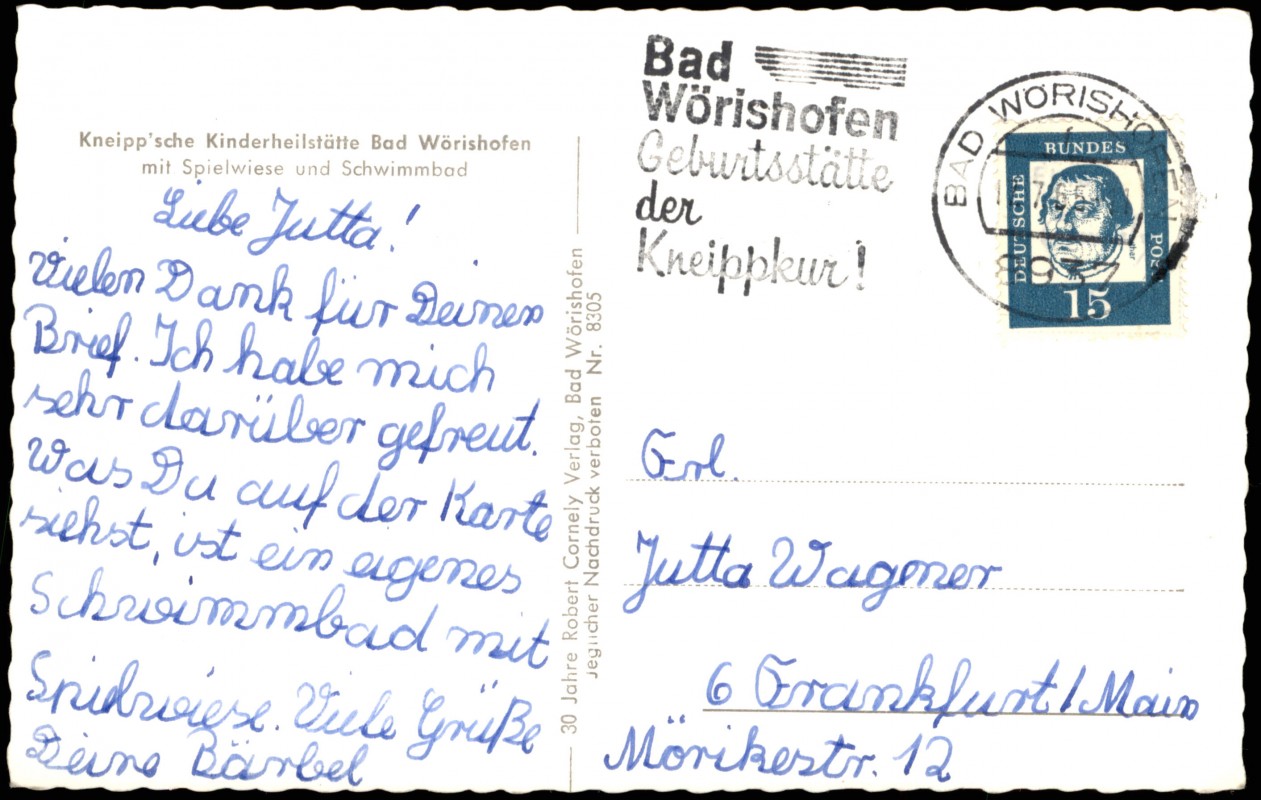 Kneipp'sche Kinderheilstätte Bad Wörishofen
mit Spielwiese und Schwimmbad
Liebe Jutta!
Vielen Dank für Deinen
Brief. Ich habe mich
sehr darüber gefreut.
Was Du auf der Karte
siehst, ist ein eigenes
Schwimmbad mit
Spielwiese. Viele Grüße
Deine Bärbel
30 Jahre Robert Cornely Verlag, Bad Wörishofen
Jeglicher Nachdruck verboten Nr. 8305
Bad
Wörishofen
Geburtsstätte
der
Kneippkur!
BAD WÖRISHOFEN
8937
DEUTSCHE
BUNDES
POST
15
Frl.
Jutta Wagener
6 Frankfurt/Main
Mörikestr. 12